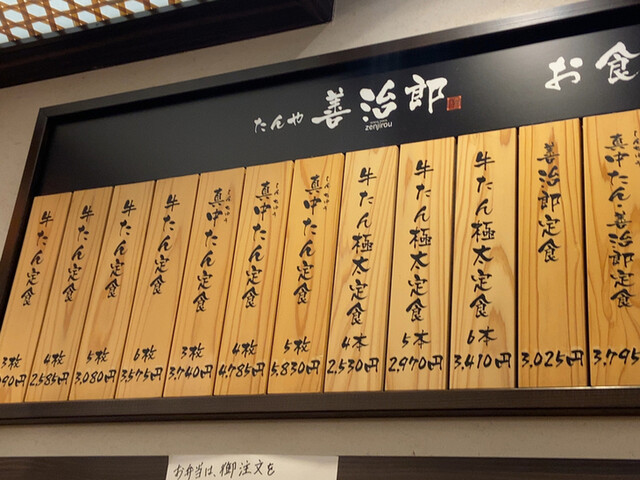 たんや 善治郎
zenjirou
お食
牛たん定食 3枚 90円
牛たん定食 4枚 2,585円
牛たん定食 5枚 3,080円
牛たん定食 6枚 3,575円
真中たん定食 3枚 3,740円
真中たん定食 4枚 4,785円
真中たん定食 5枚 5,830円
牛たん極太定食 4本 2,530円
牛たん極太定食 5本 2,970円
牛たん極太定食 6本 3,410円
善治郎定食 3,025円
真中たん善治郎定食 3,795
お弁当は、御注文を